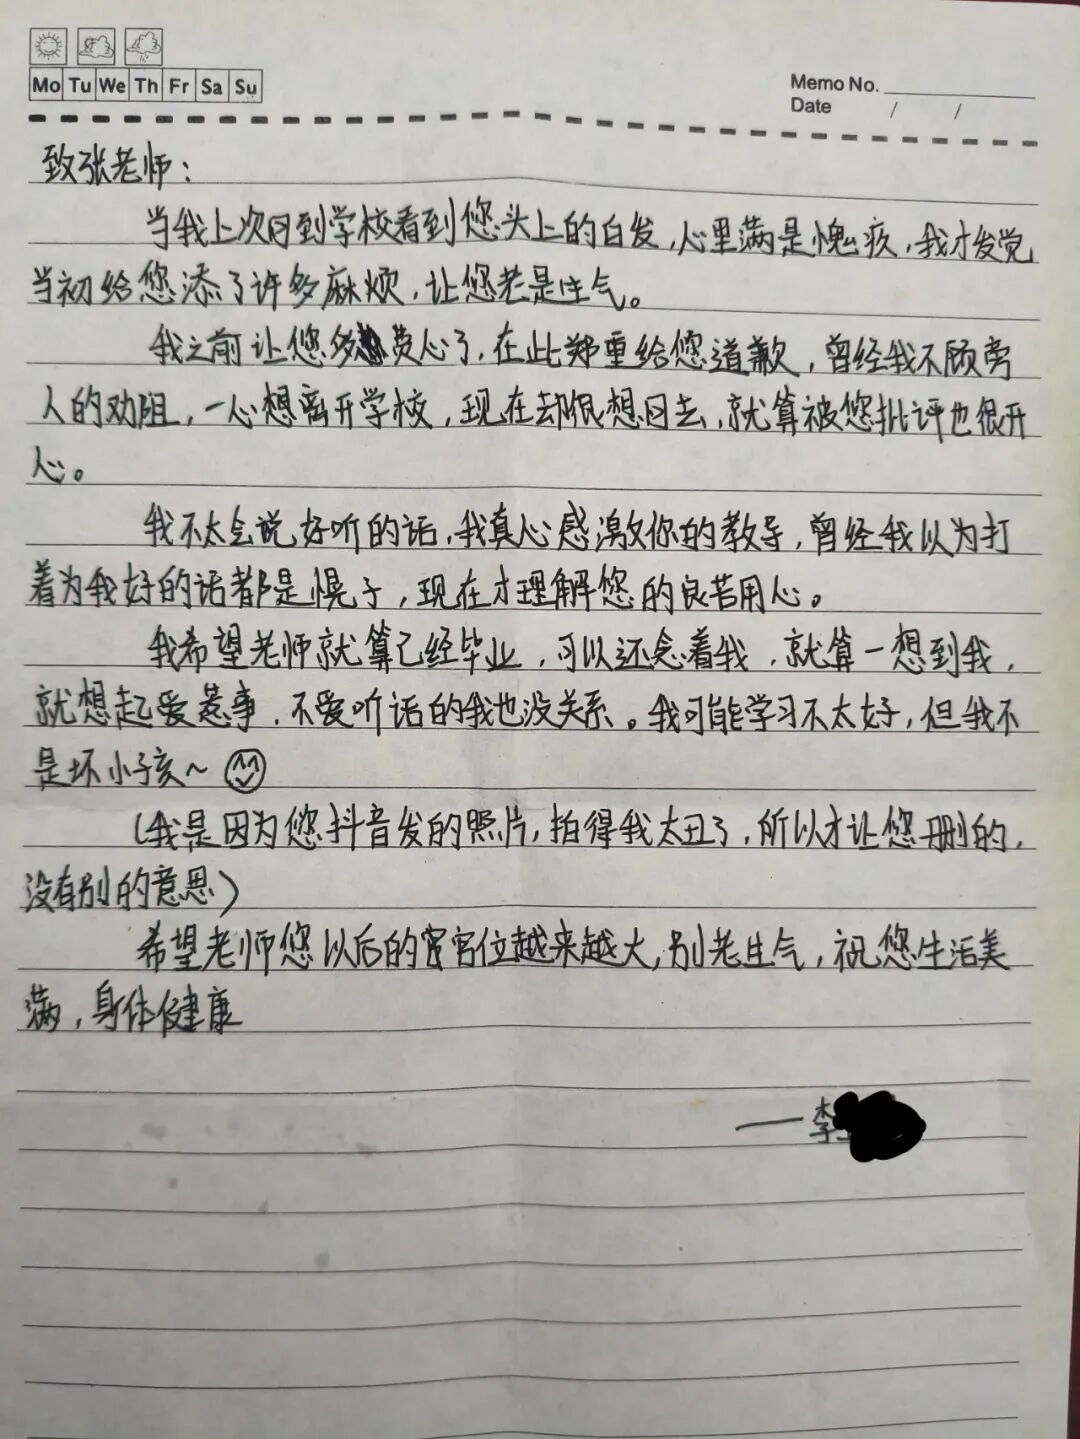 Mo Tu We Th Fr Sa Su
Memo No.
Date / /
致张老师：
当我上次回到学校看到您头上的白发，心里满是愧疚，我才发觉
当初给您添了许多麻烦，让您老是生气。
我之前让您多费心了，在此郑重给您道歉，曾经我不顾旁
人的劝阻，一心想离开学校，现在却很想回去，就算被您批评也很开
心。
我不太会说好听的话，我真心感激你的教导，曾经我以为打
着为我好的话都是幌子，现在才理解您的良苦用心。
我希望老师就算已经毕业，可以还念着我，就算一想到我，
就想起爱惹事，不爱听话的我也没关系。我可能学习不太好，但我不
是坏小孩~
（我是因为您抖音发的照片，拍得我太丑了，所以才让您删的，
没有别的意思）
希望老师您以后的官位越来越大，别老生气，祝您生活美
满，身体健康
——李